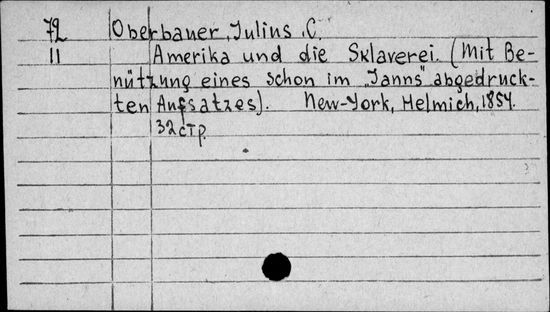 72 Oberbauer, Julius C.
11 Amerika und die Sklaverei. (Mit Be-
nützung eines schon im „Janns" abgedruck-
ten Aufsatzes). New-York, Helmich, 1854.
32 стр.